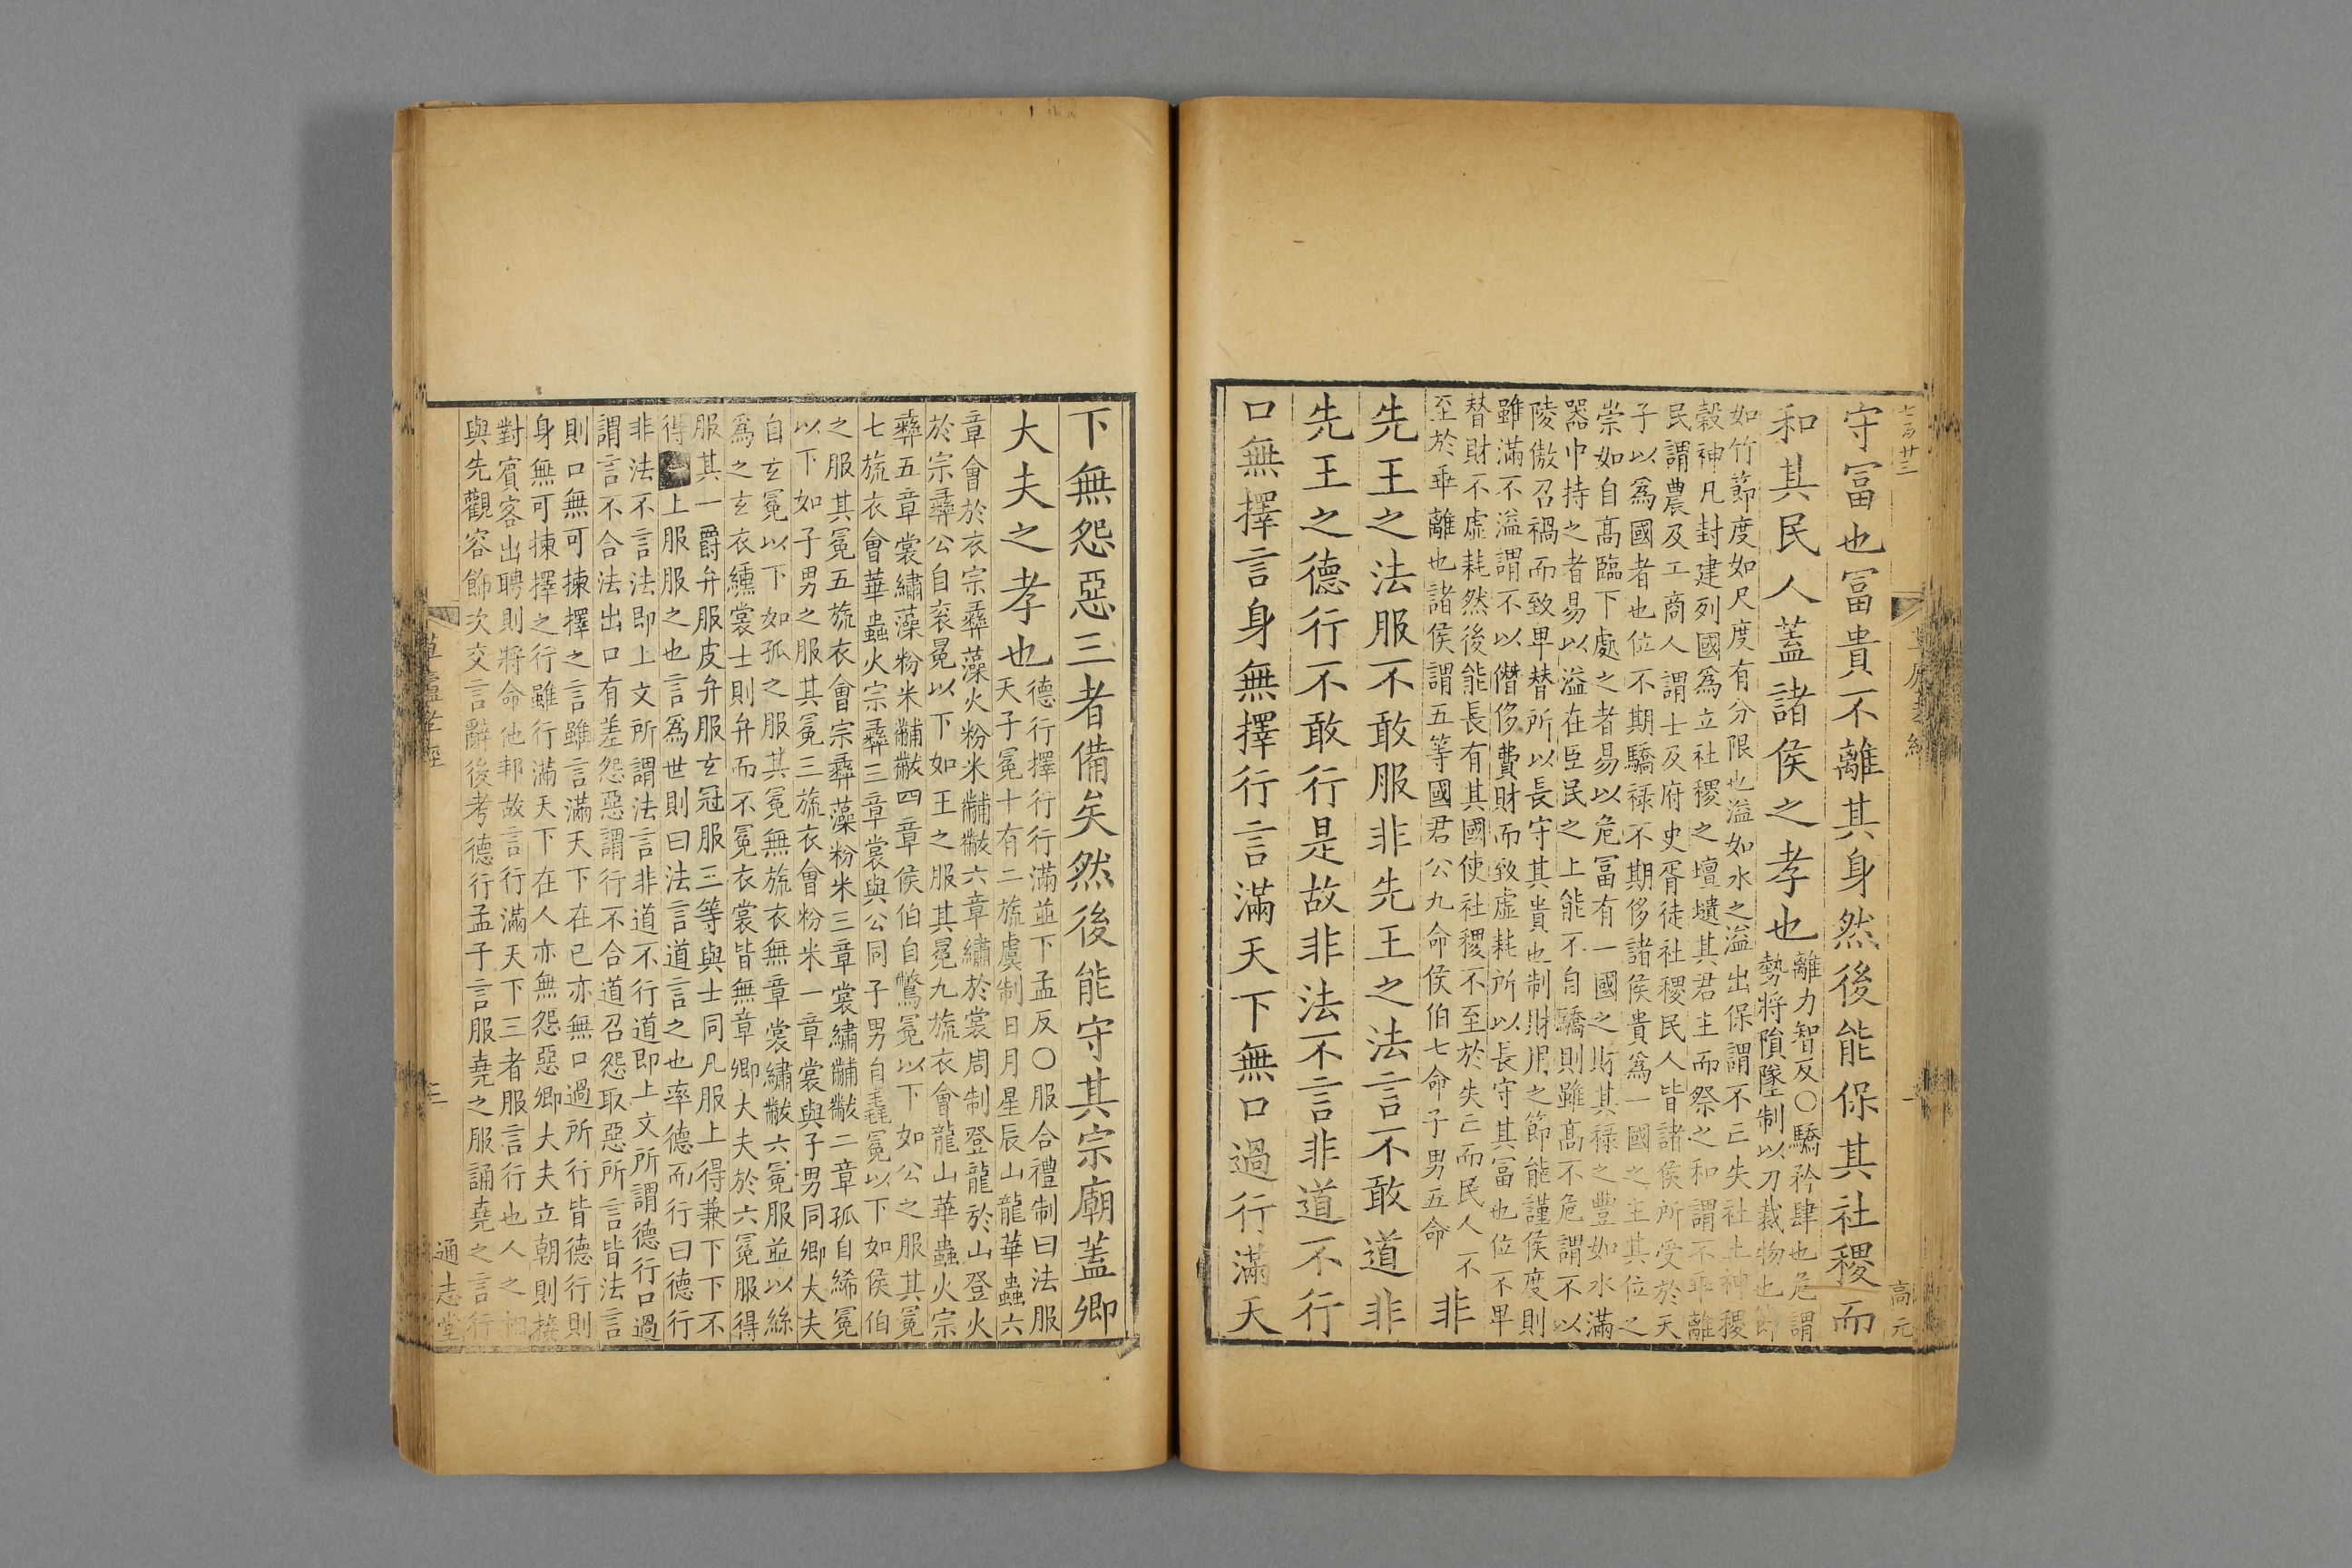 守冨也冨貴不離其身然後能保其社稷而
和其民人蓋諸侯之孝也
離力智反○驕矜肆也危謂
勢將隕墜制以刀裁物也節
如竹節度如尺度有分限也溢如水之溢出保謂不亡失社土神稷
穀神凡封建列國爲立社稷之壇壝其君主而祭之和謂不乖離
民謂農及工商人謂士及府史胥徒社稷民人皆諸侯所受於天
子以爲國者也位不期驕祿不期侈諸侯貴爲一國之主其位之
崇如自髙臨下處之者易以危冨有一國之財其祿之豐如水滿
器巾持之者易以溢在臣民之上能不自驕則雖髙不危謂不以
陵傲召禍而致卑替所以長守其貴也制財用之節能謹侯度則
雖滿不溢謂不以僭侈費財而致虛耗所以長守其冨也位不卑
替財不虛耗然後能長有其國使社稷不至於失亡而民人不
至於乖離也諸侯謂五等國君公九命侯伯七命子男五命
非
先王之法服不敢服非先王之法言不敢道非
先王之德行不敢行是故非法不言非道不行
口無擇言身無擇行言滿天下無口過行滿天
下無怨惡三者備矣然後能守其宗廟蓋卿
大夫之孝也
德行擇行行滿並下孟反○服合禮制曰法服
天子冕十有二旒虞制日月星辰山龍華蟲六
章會於衣宗彞藻火粉米黼黻六章繡於裳周制登龍於山登火
於宗彞公自衮冕以下如王之服其冕九旒衣會龍山華蟲火宗
彞五章裳繡藻粉米黼黻四章侯伯自鷩冕以下如公之服其冕
七旒衣會華蟲火宗彞三章裳與公同子男自毳冕以下如侯伯
之服其冕五旒衣會宗彞藻粉米三章裳繡黼黻二章孤自絺冕
以下如子男之服其冕三旒衣會粉米一章裳與子男同卿大夫
自玄冕以下如孤之服其冕無旒衣無章裳繡黻六冕服並以絲
爲之玄衣纁裳士則弁而不冕衣裳皆無章卿大夫於六冕服得
服其一爵弁服皮弁服玄冠服三等與士同凡服上得兼下下不
得上服服之也言爲世則曰法言道言之也率德而行曰德行
非法不言法即上文所謂法言非道不行道即上文所謂德行口過
謂言不合法出口有差怨惡謂行不合道召怨取惡所言皆法言
則口無可揀擇之言雖言滿天下在已亦無口過所行皆德行則
身無可揀擇之行雖行滿天下在人亦無怨惡卿大夫立朝則接
對賓客出聘則將命他邦故言行滿天下三者服言行也人之相
與先觀容飾次交言辭後考德行孟子言服堯之服誦堯之言行
三
通志堂